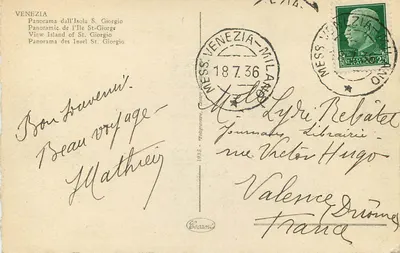 VENEZIA
Panorama dall'Isola S. Giorgio
Panoramie de l'Ile St-Giorgs
View Island of St. Giorgio
Panorama des Insel St. Giorgio
MESS. VENEZIA-MILANO
18 7 36
MESS. VENEZIA MILANO
Bon souvenir.
Beau voyage -
Mathieu
Melle Lydie Rebatet
Journaux Librairie
rue Victor Hugo
Valence Drôme
France